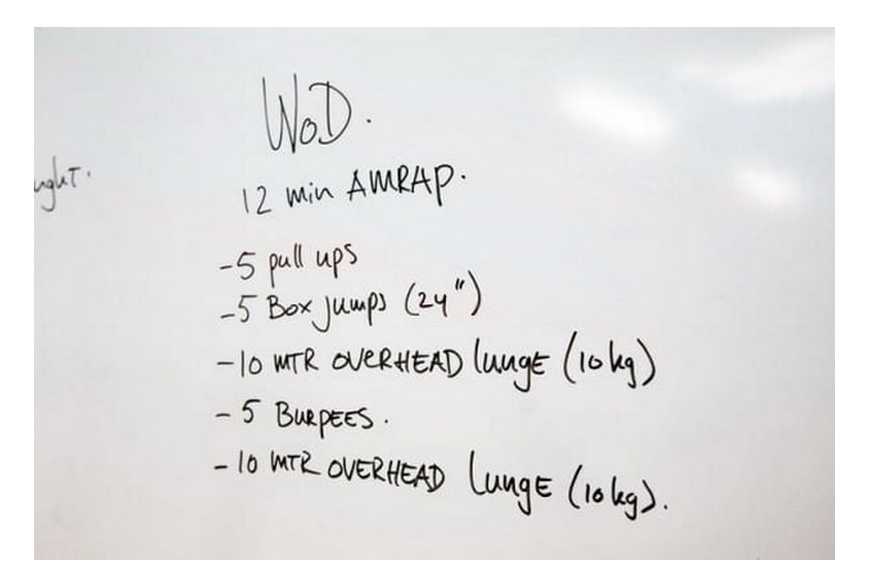 WoD.
12 min AMRAP.
-5 pull ups
-5 Box jumps (24")
-10 MTR OVERHEAD lungE (10kg)
- 5 BURPEES.
- 10 MTR OVERHEAD lungE (10kg).